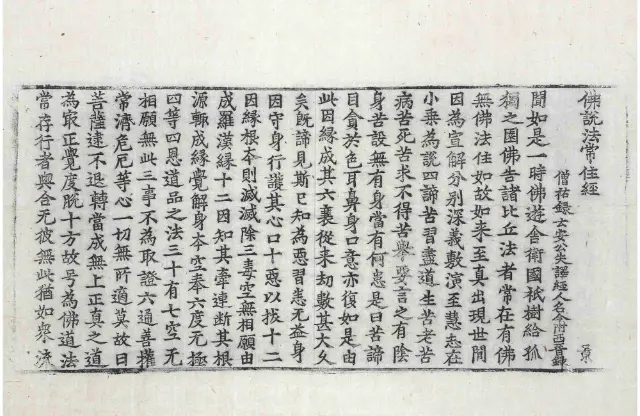 佛說法常住經
僧祐錄云安公失譯經人名今附西晉錄
聞如是一時佛遊舍衛國祇樹給孤
獨之園佛告諸比丘法者常在有佛
無佛法住如故如來至真出現世間
因為宣解分別深義敷演至慧志在
小乗為說四諦苦習盡道生苦老苦
病苦死苦求不得苦舉要言之有陰
身苦設無有身當有何患是曰苦諦
目貪於色耳鼻身口意亦復如是由
此因縁成其六衰從來劫數甚大久
矣旣諦見斯已知為惡習患无益身
因守身行護其心口十惡以拔十二
因縁根夲則滅滅除三毒空無相願由
成羅漢縁十二因知其牽連斷其根
源輒成縁覺解身夲空奉六度无極
四等四恩道品之法三十有七空无
相願無此三事不為取證六通善權
常濟危厄等心一切無所適莫故曰
菩薩逮不退轉當成無上正真之道
為㝡正覺度脫十方故号為佛道法
常存行者與合无彼無此猶如衆流